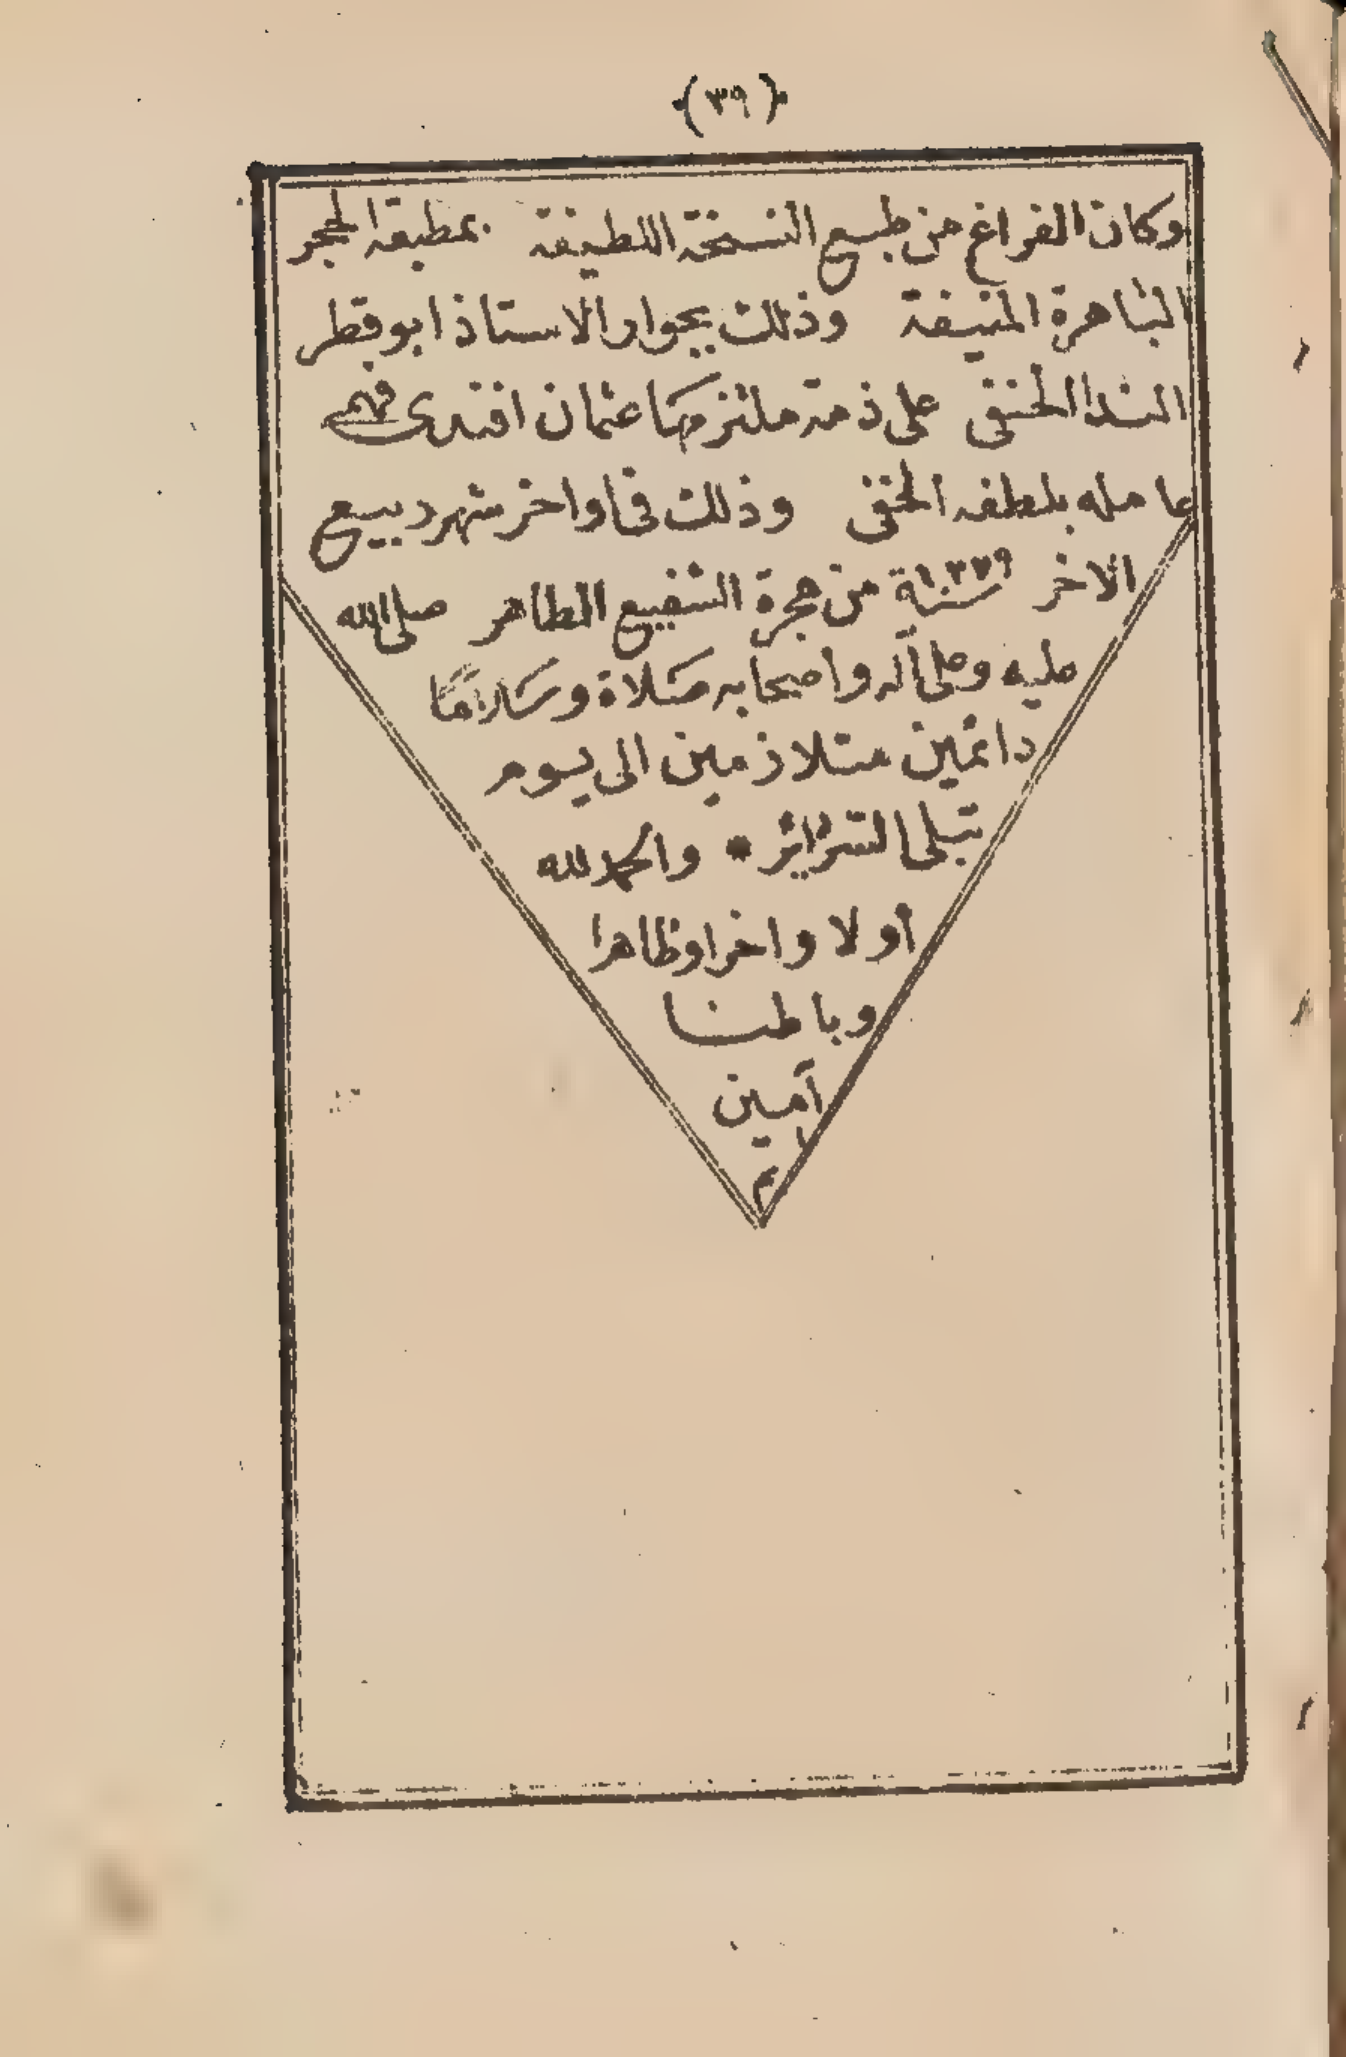 (٣٩)
وكان الفراغ من طبع النسخة اللطيفة بمطبعة الحجر
الباهرة المنيفة وذلك بجوار الاستاذ ابو قطر
الندا الحنفى على ذمة ملتزمها عثمان افندى
عامله بلطفه الخفى وذلك فى اواخر شهر ربيع
الاخر سنة ١٢٧٩ من هجرة الشفيع الطاهر صلى الله
عليه وعلى آله واصحابه صلاة وسلامًا
دائمين متلازمين الى يوم
تبلى السرائر * والحمد لله
أولا واخرا وظاهرا
وباطنا
آمين
م